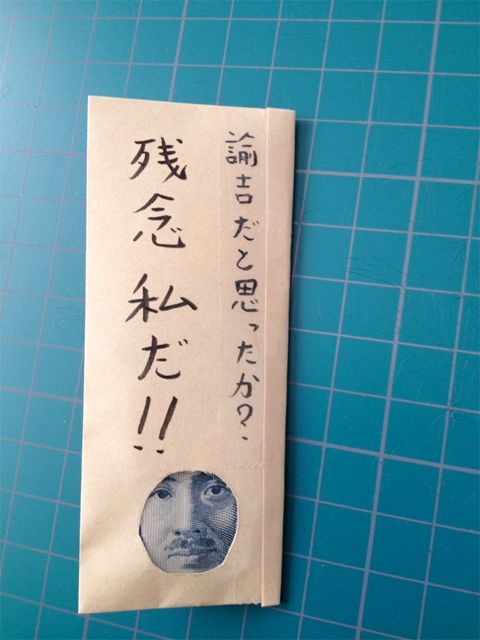 諭吉だと思ったか?
残念私だ!!